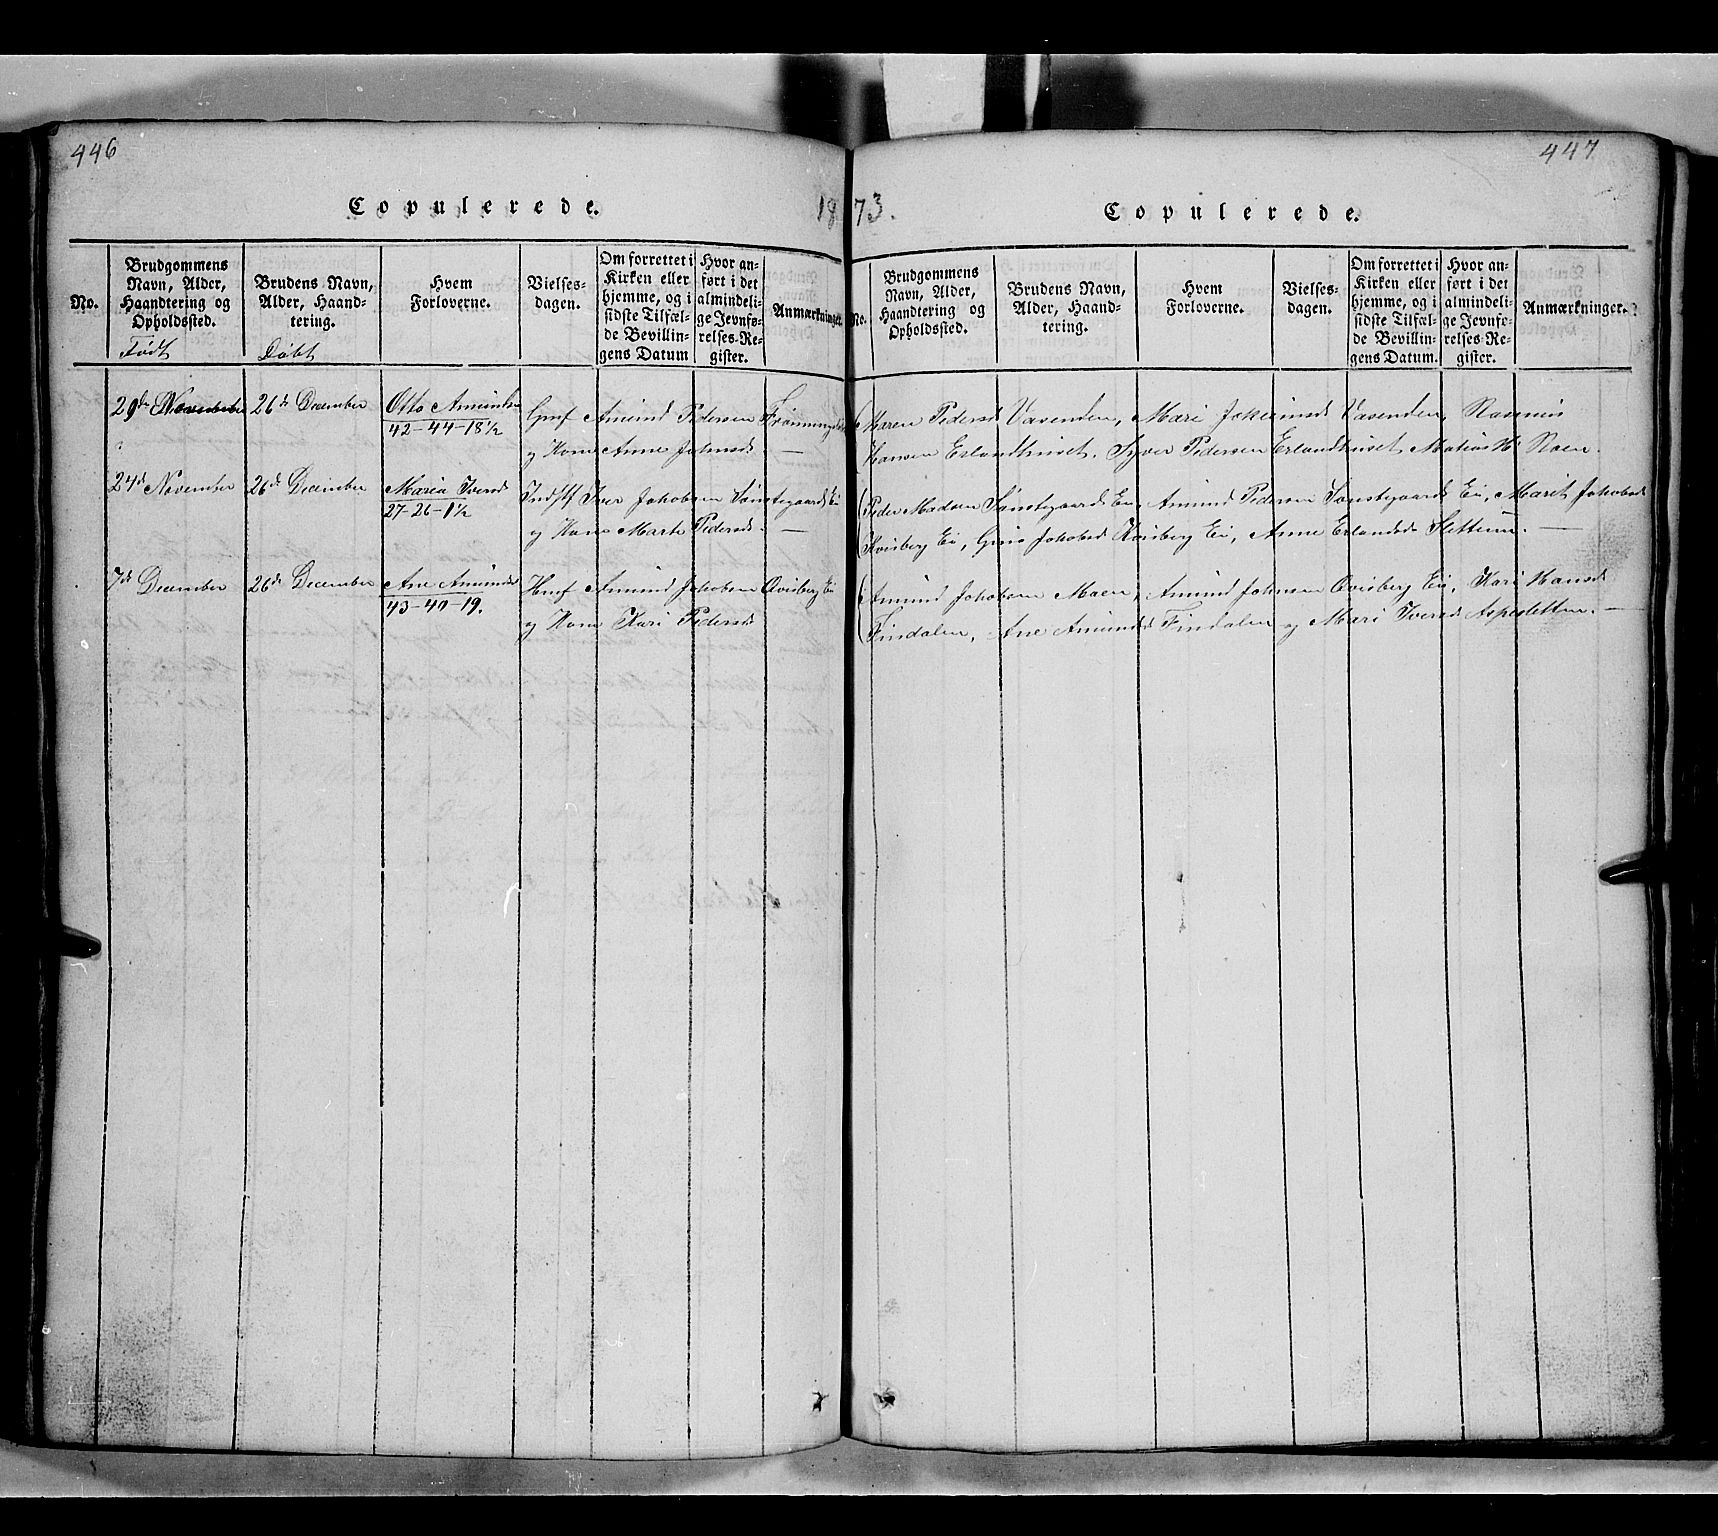 446
447
Copulerede.
1873.
Copulerede.
No.
Brudgommens Navn, Alder, Haandtering og Opholdssted.
Brudens Navn, Alder, Haandtering.
Hvem Forloverne.
Vielsesdagen.
Om forrettet i Kirken eller hjemme, og i sidste Tilfælde Bevillingens Datum
Hvor anført i det almindelige Jevnførelses-Register.
Anmærkninger.
No.
Brudgommens Navn, Alder, Haandtering og Opholdssted.
Brudens Navn, Alder, Haandtering.
Hvem Forloverne.
Vielsesdagen.
Om forrettet i Kirken eller hjemme, og i sidste Tilfælde Bevillingens Datum.
Hvor anført i det almindelige Jevnførelses-Register.
Anmærkninger.
Født Døbt
29de November 26de December Otto Amundsen Gmf Amund Pedersen Maren Pedersd Vasenden, Mari Jokumsd Vasenden, Rasmus
42-44-18½ og Kone Anne Johnsd. — Hansen Erlandhuset, Syver Pedersen Erlandhuset, Matias H. Roen.
24d November 26de December Maria Iversd Indst Iver Jakobsen Sønstegaards Ei Peder Madsen Sønstegaards Ei, Amund Pedersen Sønstegaards Ei, Marit Jakobsd
27-26-1½ og Kone Marte Pedersd. — Kvisberg Ei, Jakobsd Kvisberg Ei, Anne Erlandsd Slettum. —
7de December 26de December Ane Amundsd Hmf Amund Jakobsen Qvisberg Ei Amund Jakobsen Moen, Amund Johnsen Qvisberg Ei, Kari Hansd
43-40-19. og Kone Kari Pedersd Findalen, Ane Amundsd Findalen og Mari Iversd Aspesletten. —